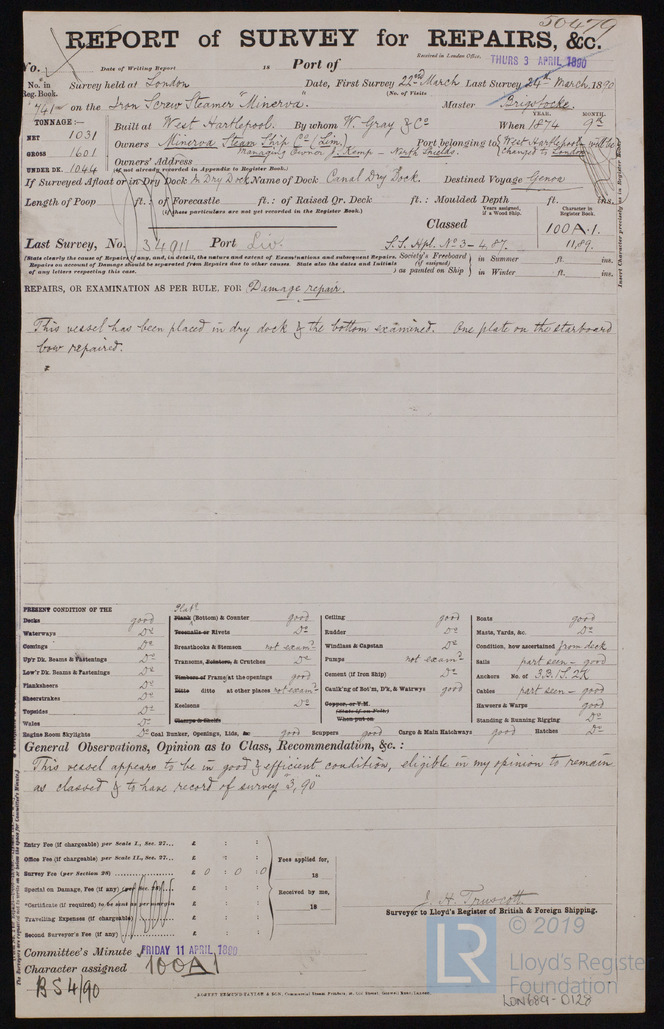 50479
REPORT of SURVEY for REPAIRS, &c.
Received in London Office. THURS 3 APRIL 1890
No. Date of Writing Report 18 Port of
No. in Reg. Book. Survey held at London Date, First Survey 22nd March Last Survey 24th March 1890
(No. of Visits)
741 on the Iron Screw Steamer "Minerva. Master Brigstocke.
TONNAGE:— YEAR. MONTH.
NET 1031 Built at West Hartlepool. By whom W. Gray & Co When 1874 9
GROSS 1601 Owners Minerva Steam Ship Co (Lim.) Port belonging to West Hartlepool - will be changed to London
Managing Owner J. Kemp - North Shields.
UNDER DK. 1044 Owners' Address
(if not already recorded in Appendix to Register Book.)
If Surveyed Afloat or in Dry Dock In Dry Dock Name of Dock Canal Dry Dock. Destined Voyage Genoa
Length of Poop ft.: of Forecastle ft.: of Raised Qr. Deck ft.: Moulded Depth ft. ins.
(if these particulars are not yet recorded in the Register Book.)
Years assigned, if a Wood Ship. Character in Register Book.
Classed 100A.1.
Last Survey, No. 34911 Port Liv. S.S. Hpl. No 3 - 4.87. 11.89.
(State clearly the cause of Repairs if any, and, in detail, the nature and extent of Examinations and subsequent Repairs.
Repairs on account of Damage should be separated from Repairs due to other causes. State also the dates and Initials
of any letters respecting this case.
Society's Freeboard (if assigned) as painted on Ship in Summer ft. ins.
in Winter ft. ins.
Insert Character precisely as in Register Book
REPAIRS, OR EXAMINATION AS PER RULE, FOR Damage repair.
This vessel has been placed in dry dock & the bottom examined. One plate on the starboard
bow repaired.
PRESENT CONDITION OF THE
Decks good
Waterways Do
Comings Do
Up'r Dk. Beams & Fastenings Do
Low'r Dk. Beams & Fastenings Do
Planksheers Do
Sheerstrakes Do
Topsides Do
Wales Do
Engine Room Skylights Do
Plank (Bottom) & Counter good
Treenails or Rivets Do
Breasthooks & Stemson not examd
Transoms, Pointers, & Crutches Do
Timbers of Frame at the openings good
Ditto ditto at other places not examd
Keelsons Do
Clamps & Shelfs
Coal Bunker, Openings, Lids, &c good
Ceiling good
Rudder Do
Windlass & Capstan Do
Pumps not examd
Cement (if Iron Ship) Do
Caulk'ng of Bot'm, D'k, & Watrwys good
Copper, or Y.M.
(State if on Felt)
When put on
Scuppers good Cargo & Main Hatchways good Hatches Do
Boats good
Masts, Yards, &c. Do
Condition, how ascertained from deck
Sails part seen - good
Anchors No. of 3B. 1S. 2K
Cables part seen - good
Hawsers & Warps good
Standing & Running Rigging Do
General Observations, Opinion as to Class, Recommendation, &c.:
This vessel appears to be in good & efficient condition, eligible in my opinion to remain
as classed & to have record of survey "3,90"
Entry Fee (if chargeable) per Scale I., Sec. 27... £ : :
Office Fee (if chargeable) per Scale II., Sec. 27... £ : :
Survey Fee (per Section 28) £ 0 : 0 : 0
Special on Damage, Fee (if any) (per Sec. 28) £ : :
*Certificate (if required) to be sent as per margin £ : :
Travelling Expenses (if chargeable) £ : :
Second Surveyor's Fee (if any) £ : :
Fees applied for, 18
Received by me, 18
J. H. Truscott
Surveyor to Lloyd's Register of British & Foreign Shipping.
Committee's Minute FRIDAY 11 APRIL 1890
Character assigned 100A1
BS 4/90
© 2019
LR Lloyd's Register Foundation
LDN689-0128